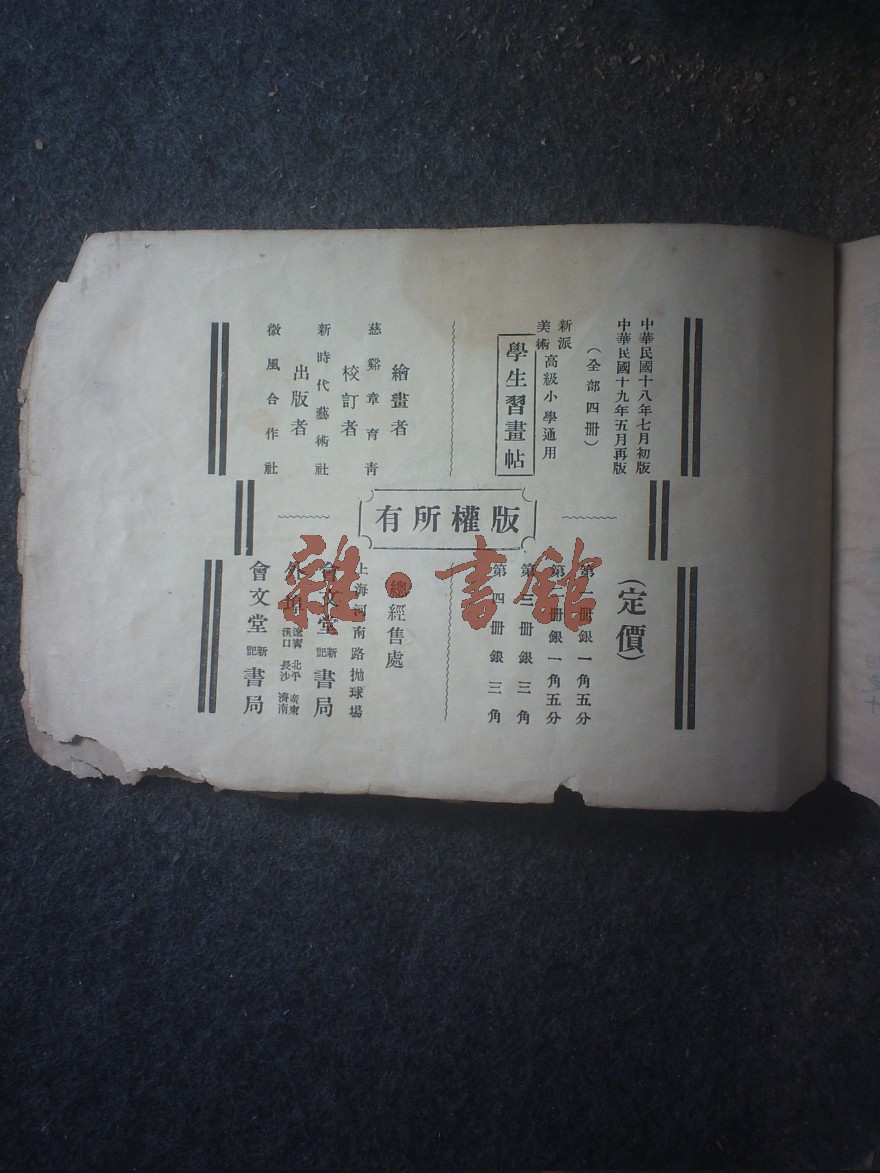 中華民國十八年七月初版
中華民國十九年五月再版
(全部四冊)
新派
美術
高級小學適用
學生習畫帖
繪畫者
慈谿章育青
校訂者
新時代藝術社
出版者
微風合作社
版權所有
(定價)
第一冊銀一角五分
第二冊銀一角五分
第三冊銀三角
第四冊銀三角
總經售處
上海河南路拋球場
會文堂新記書局
外埠
遼寧 北平 廣東
漢口 長沙 濟南
會文堂新記書局
雜·書館